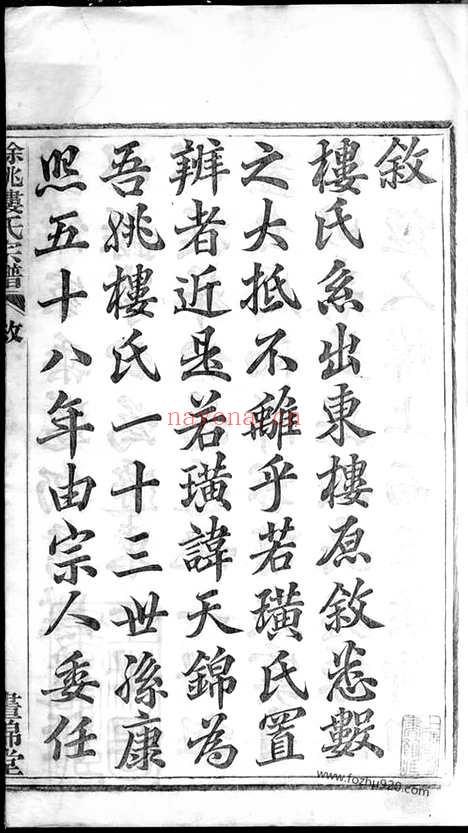 敘
樓氏系出東樓原敘悉數
之大抵不離乎若璜氏置
辨者近是若璜諱天錦為
吾姚樓氏一十三世孫康
熙五十八年由宗人委任
餘姚樓氏宗譜 敘 晝錦堂
nayona.cn
www.fozhu920.com